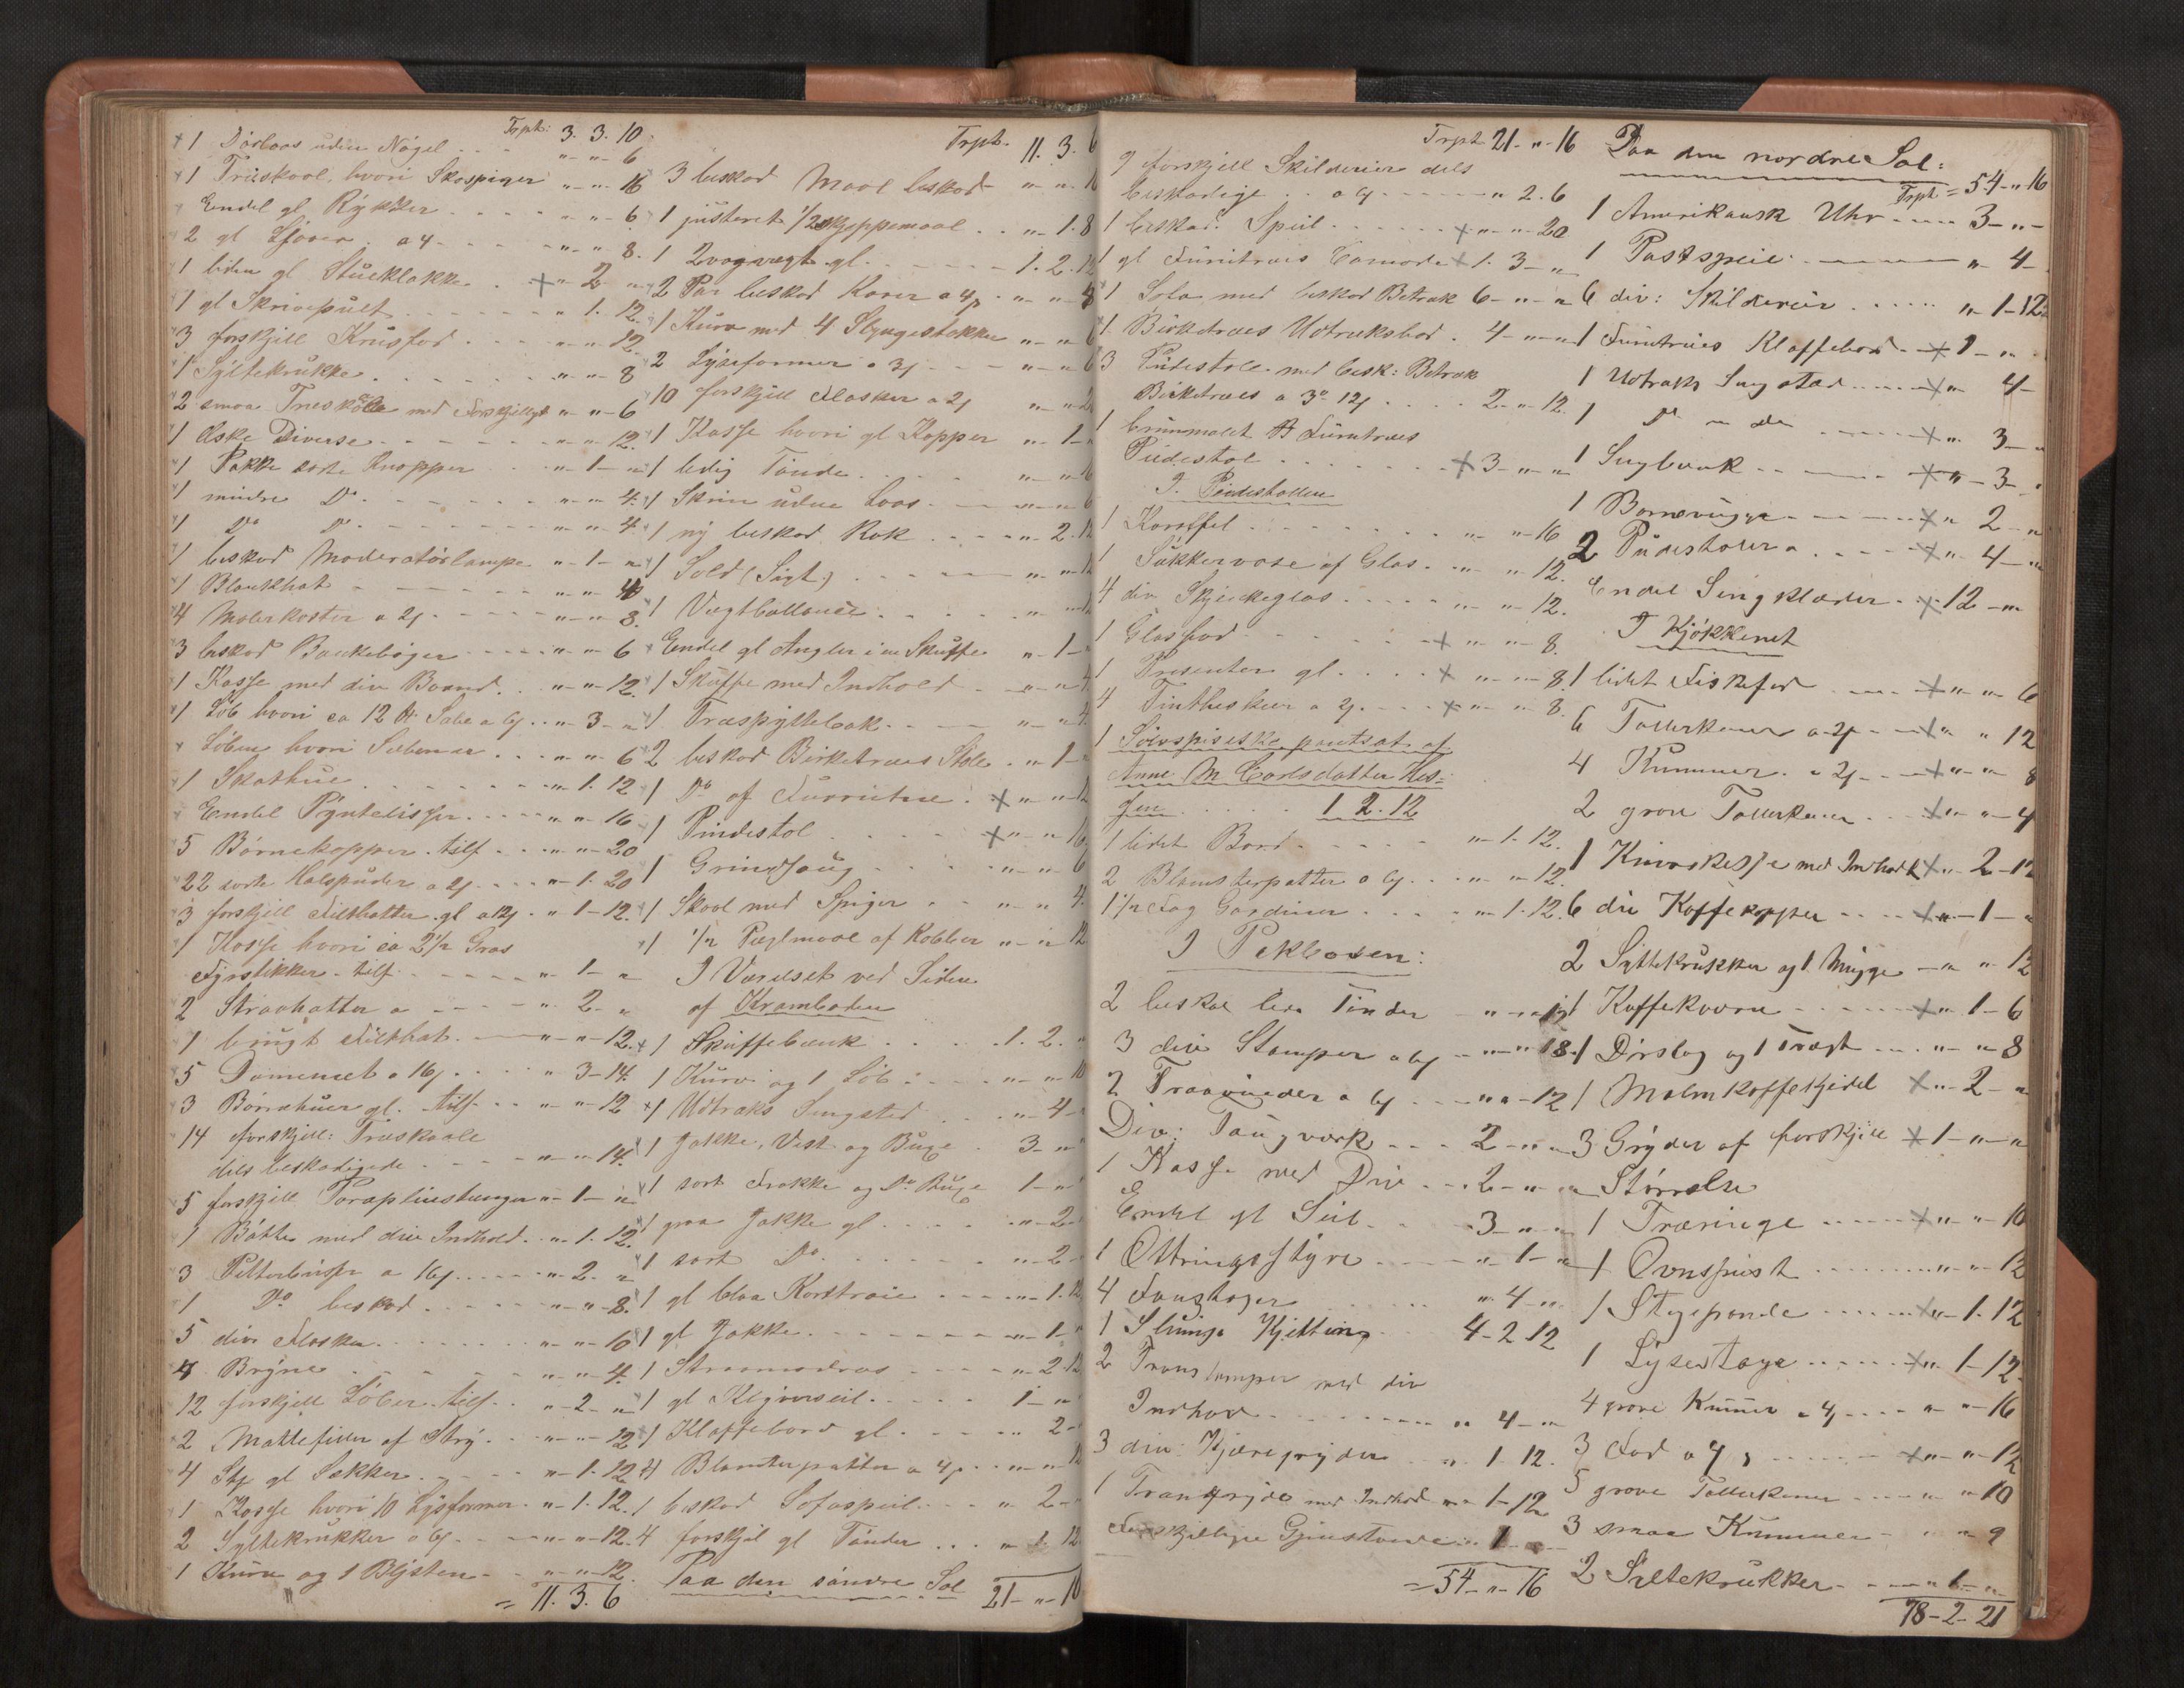 Trpt: 3. 3. 10.
1 Dörlaas uden Nögel . . . " " 6
1 Træskaal, hvori Skospiger " " 16
Endel gl Rykker . . . . " " 6
2 gl Ljaaer. a 4 . . . " " 8.
1 liden gl Stueklokke . . " 2 "
1 gl Skrivepult . . . . " 1. 12.
3 forskjell Krusfad . . . " " 12
1 Syltekrukke . . . . " " 8
2 smaa Træskaale med Forskjelligt " " 6
1 Æske Diverse . . . . " " 12.
1 Pakke sorte Knapper . . " 1 "
1 mindre Do . . . . " " 4.
1 Do Do . . . . " " 4.
1 beskad Moderatörlampe " 1 "
1 Blankhat
4 Malerkoster a 2 . . " " 8.
3 beskad Bankebøger . . . " " 6
1 Kasse med div Baand . . " " 12.
1 Löb hvori ca 12 Sæbe a 6 . . " 3 "
Löben hvori Sæben er . . . " " 6
1 Skathue . . . . " 1. 12
Endel Pyntelisser . . . " " 16
5 Börnekopper tils . . . " " 20
22 sorte Halspuder a 2 . . . " 1. 20
3 forskjell Filthatter gl a 12 . " 1 12.
1 Kasse hvori ca 2 1/2 Gros
Fyrstikker tils . . . . " 1 "
2 Straahatter a . . . " 2. "
1 brugt Filthat . . . " " 12.
5 Damenæt a 16 . . . " 3 14.
3 Börnehuer gl. tils . . " " 12
14 forskjell: Træskaale
dels beskadigede . . . " " 14.
5 forskjell Paraplustænger " 1 "
1 Bötte med div Indhold . . " 1. 12.
3 Peltebusser a 16 . . . . " 2. "
1 Do beskad . . . . " " 8.
5 div Flasker . . . . " " 10
4 Bryne . . . . " " 4.
12 forskjell Löber tils . . " 2 "
2 Mattefiller af Stry . . " " 12
4 Stk gl Sækker . . . . " 1. 12
1 Kasse hvori 10 Lysformer . " 1. 12.
2 Syltekrukker a 6 . . . " " 12.
1 Kurv og 1 Blysten . . " " 12.
= 11. 3. 6
Trpt. 11. 3. 6
3 beskad Maal beskad " " 16
1 justeret 1/2 skjeppemaal . . " 1. 8
1 Tvogvægt gl. . . . 1. 2. 12
2 Par beskad Karer a 4 . . " " 8
1 Kurv med 4 Slyngestokke " " 6
2 Lyseformer a 3 . . . " " 6
10 forskjell Flasker a 2 " " 20
1 Kasse hvori gl Kopper " 1 "
1 ledig Tönde . . . . " " 16
1 Skrin uden Laas . . . " " 6
1 ny beskad Rok . . . . " 2. 12
1 Sold (Sigt) . . . . " " 12
1 Vægtballance . . . . " " 12
Endel gl Angler i en Skuffe " 1 "
1 Skuffe med Indhold . . " " 4
1 Træspyttebak . . . . " " 4.
2 beskad Birketræes Stole . . " 1 "
1 Do af Furrutræ . . " " 12
1 Pindestol . . . . " " 16
1 Grindsaug . . . . " " 6
1 Skaal med Spiger . . " " 4.
1 1/2 Pæglmaal af Kobber " " 12
I Værelset ved Siden
af Kramboden
1 Skuffebænk . . . . 1. 2. "
1 Kurv og 1 Löb . . . " " 10
1 Udtræks Sengsted . . " 4 "
1 Jakke, Vest og Buxe . 3 "
1 sort Frakke og Do Buxe 1 "
1 graa Jakke gl . . . . " 2
1 sort Do . . . . " 2
1 gl blaa Kortröie . . . " 1. 12
1 gl Jakke . . . . " 1 "
1 Straamadras . . . " 2. 12
1 gl Klyverseil . . . . 1 "
1 Klaffebord gl . . . . 2
4 Blomsterpotter a 4 . . " " 16
1 beskad Sofaspeil . . . " 2
4 forskjel gl Tönder . . . " 1. 12
Paa den söndre Sal 21 " 16
Trpt 21 " 16
9 forskjell Skilderier dels
beskadige . . a 6 . . . " 2. 6
1 beskad: Speil . . . . " " 20
1 gl Furutræes Comode 1. 3 "
1 Sofa med beskad Betræk 6 " "
1 Birketræes Udtræksbord . 4 " "
3 Pudestole med besk: Betræk
Birketræes a 3o 12 . . . 2 " 12.
1 brunmalet Furutræes
Pudestol . . . . 3 " "
I Pudestollen
1 Kortspil . . . . " " 16
1 Sukkervase af Glas . . " " 12.
4 div Skjenkeglas . . . " " 12.
1 Glasfad . . . . " " 8.
1 Presenter gl . . . . " " 8.
4 Theskeer a 2 . . . " " 8.
1 Sölvspiseske pantsat af
Anne M Carlsdatter Hes=
1 2. 12
1 lidet Bord . . . . " 1. 12.
2 Blomsterpotter a 6 . . . " " 12.
1 1/2 Fag Gardiner . . . . " 1. 12.
I Pakboden:
2 beskad Tönder
3 div Stamper a 6 . . " " 18.
2 Traavinder a 6 . . . " " 12
Div: Taugværk . . . 2 " "
1 Kasse med Div . . . 2 " "
Endel gl Seil . . . 3 " "
1 Ottringsstyre . . . . " 1 "
4 " 4 "
1 Kjetting 4 2 12
2 med div
Indhold . . . . " 4 "
3 div: Kjæregryder . . " 1. 12.
1 Trangryde med Indhold " 1 12
Forskjellige 1
= 54 " 16
Paa den nordre Sal:
Trpt = 54 " 16
1 Amerikansk Uhr . . . 3 " "
1 Postspeil . . . . " 4
6 div: Skilderier . . . . " 1 12
1 Furutræes Klaffebord . . 1 "
1 Udtræks Sengsted . . . . " 4
1 Do " do . . . . " 3
1 Sengbænk . . . . " 3
1 Bornevugge . . . . " 2 "
2 Pudestoler a . . . . " 4 "
Endel Sengklæder . . 12 "
I Kjøkkenet
1 lidet Fiskefad . . . " " 6
6 Tallerkener a 2 . . " " 12
4 Kummer a 2 . . . " " 8
2 grove Tallerkener . . . " " 4
1 med Indhold " 2 12
6 div Kaffekopper . . . " 1 "
2 Syltekrukker og 1 Mugge " " 12
1 Kaffekværn . . . . " 1 6
1 Dørslag og 1 Tragt . . . " " 8
1 Malmkaffekjedel " 2 "
3 Gryder af forskjell 1 " "
Størrelse
1 Træringe . . . . " " 10
1 Ovnspust . . . . " " 12
1 Stegepande . . . . " 1. 12
1 Lysestage . . . . " 1 12
4 grove Kummer a 4 . . . " " 16
3 Fad a 4 . . . . " " 12
5 grove Tallerkener . . . " " 10
3 smaa Kummer . . " " 9
2 Syltekrukker . . . " 1 "
78 2 21